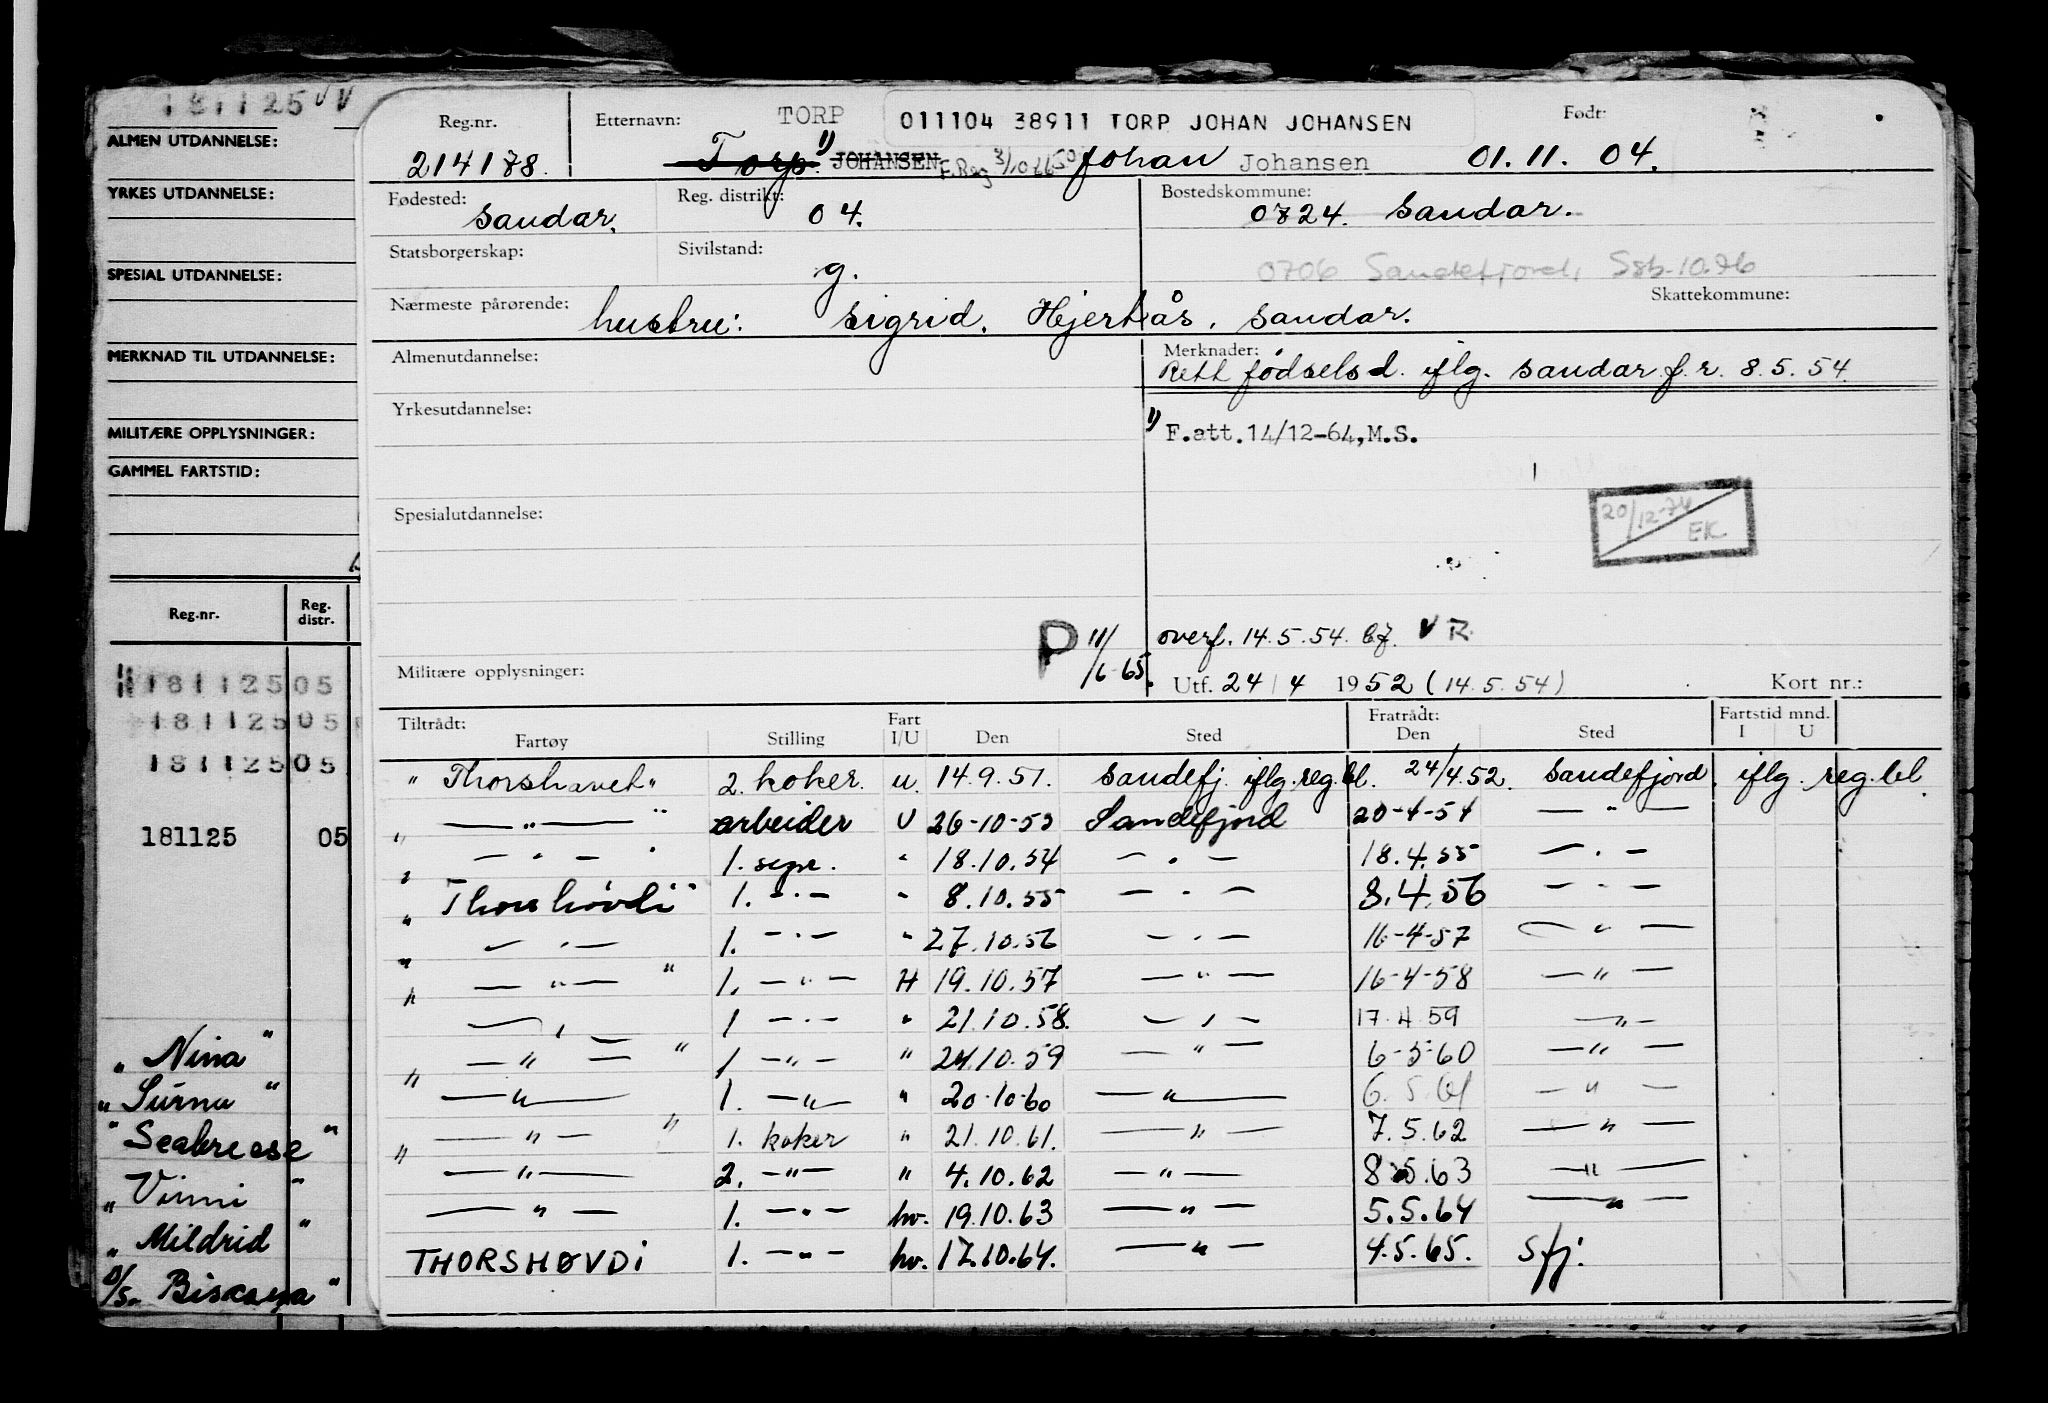 181125 V V
ALMEN UTDANNELSE:
YRKES UTDANNELSE:
SPESIAL UTDANNELSE:
MERKNAD TIL UTDANNELSE:
MILITÆRE OPPLYSNINGER:
GAMMEL FARTSTID:
Reg.nr. Reg. distr.
181125 05
181125 05
181125 05
181125 05
"Nina"
"Surna"
"Seabreese"
"Vinni"
"Mildrid"
D/S. Biscaya"
Reg.nr. Etternavn: TORP 011104 38911 TORP JOHAN JOHANSEN Født:
214178. Torp 1) JOHANSEN Johan Johansen 01.11.04.
Fødested: Reg. distrikt: Bostedskommune:
Sandar. 04. 0724. Sandar.
Statsborgerskap: Sivilstand:
g. 0706 Sandefjord, Ssb-10.76
Nærmeste pårørende: Skattekommune:
hustru: Sigrid, Hjertås, Sandar.
Almenutdannelse: Merknader:
Rett fødselsd. iflg. Sandar f.r. 8.5.54.
Yrkesutdannelse:
1) F.att.14/12-64,M.S.
Spesialutdannelse: 20/12-74 EK
P 11/6-65. overf. 14.5.54. V R.
Militære opplysninger: Utf. 24/4 1952 (14.5.54) Kort nr.:
Tiltrådt: Fart Fratrådt: Fartstid mnd.
Fartøy Stilling I/U Den Sted Den Sted I U
"Thorshavet" 2. koker. u. 14.9.51. Sandefj. iflg. reg.bl. 24/4.52. Sandefjord, iflg. reg.bl.
" — " — " arbeider U 26-10-53 Sandefjord 20-4-54 — " —
" — " — " 1. sepr. " 18.10.54 — " — 18.4.55 — " —
"Thorshövdi" 1. — " — " 8.10.55 — " — 8.4.56 — " —
" — " — 1. — " — " 27.10.56 — " — 16-4-57 — " —
" — " — " 1. — " — H 19.10.57 — " — 16-4-58 — " —
" — " — 1 — " — " 21.10.58. — " — 17.4.59 — " —
— " — " 1 — " — " 24.10.59 — " — 6-5-60 — " —
" — " — 1. — " — " 20-10-60 — " — 6.5.61 — " —
— " — " 1. koker " 21.10.61. — " — 7.5.62 — " —
" — " — 2. — " — " 4.10.62 — " — 8.5.63 — " —
— " — 1. — " — hv. 19.10.63 — " — 5.5.64 — " —
THORSHØVDI 1. — " — hv. 17.10.64. — " — 4.5.65. Sfj.